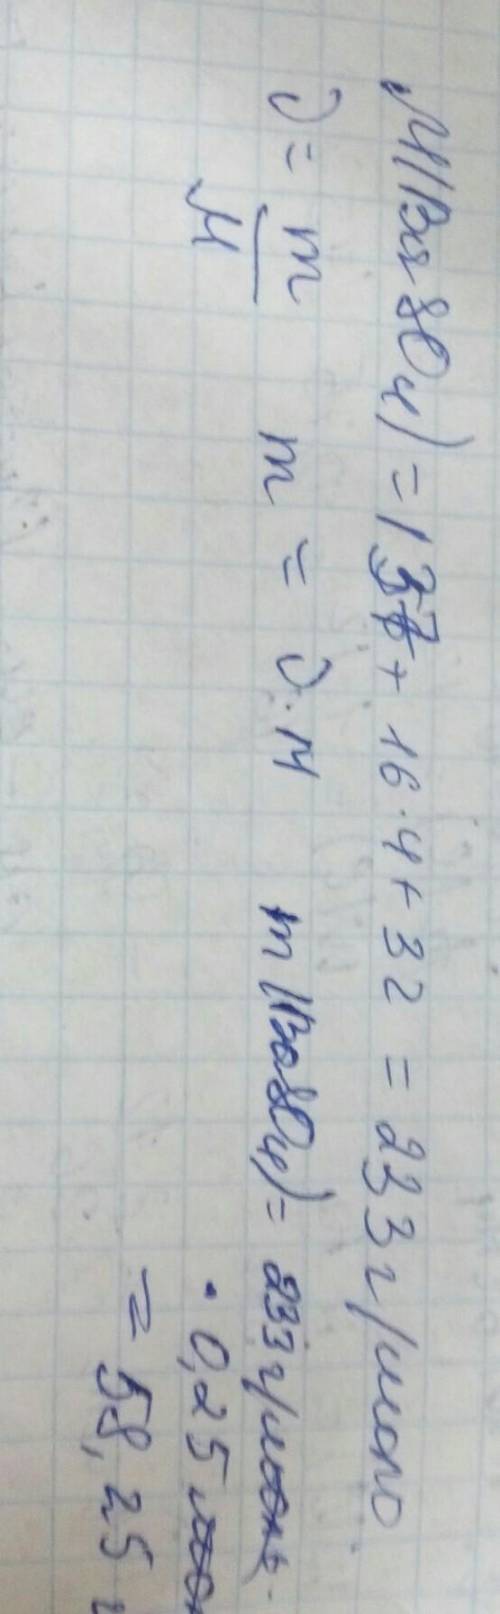 M(BaSO4) = 137 + 16·4 + 32 = 233 г/моль
ν = m/M m = ν·M m(BaSO4) = 233 г/моль ·
· 0,25 моль
= 58,25 г